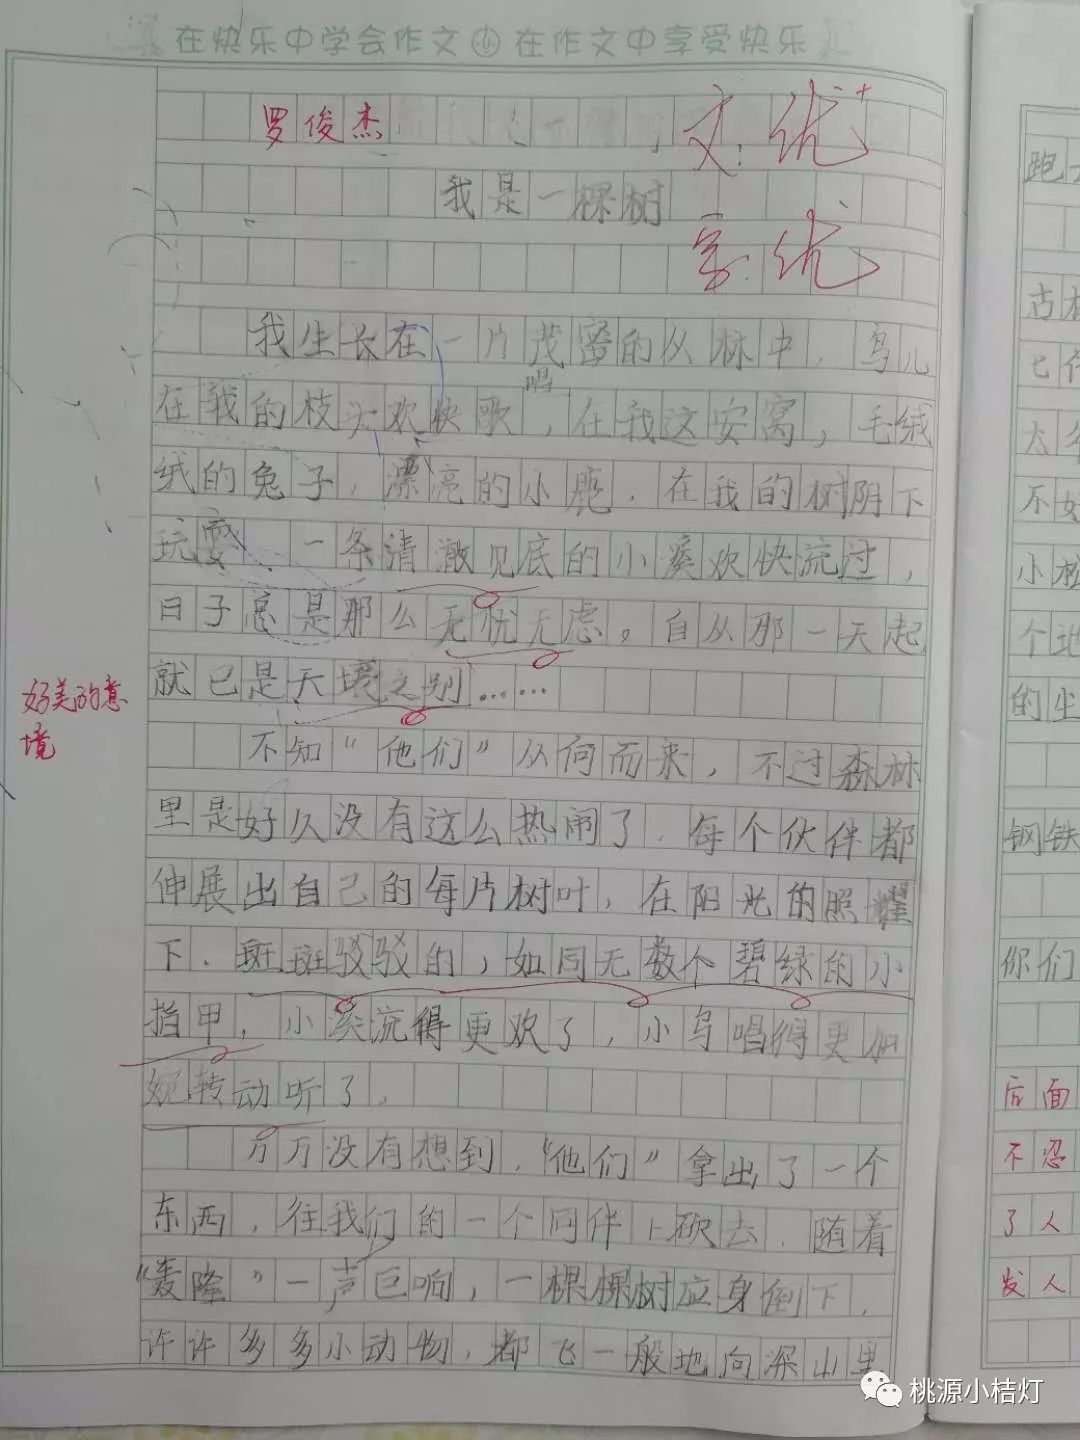 在快乐中学会作文 小 在作文中享受快乐
罗俊杰
文:优+
我是一棵树
字:优
我生长在一片茂密的从林中，鸟儿
在我的枝头欢快歌唱，在我这安窝，毛绒
绒的兔子，漂亮的小鹿，在我的树阴下
玩耍、一条清澈见底的小溪欢快流过，
日子总是那么无忧无虑。自从那一天起
就已是天壤之别……
好美的意
境
不知“他们”从何而来，不过森林
里是好久没有这么热闹了.每个伙伴都
伸展出自己的每片树叶，在阳光的照耀
下.斑斑驳驳的，如同无数个碧绿的小
指甲，小溪流得更欢了，小鸟唱得更加
婉转动听了.
万万没有想到.“他们”拿出了一个
东西，往我们的一个同伴上砍去.随着
“轰隆”一声巨响，一棵棵树应身倒下.
许许多多小动物，都飞一般地向深山里
跑
古
七
太
不好
小
个地
的生
钢铁
你们
后面
不忍
了人
发人
桃源小桔灯